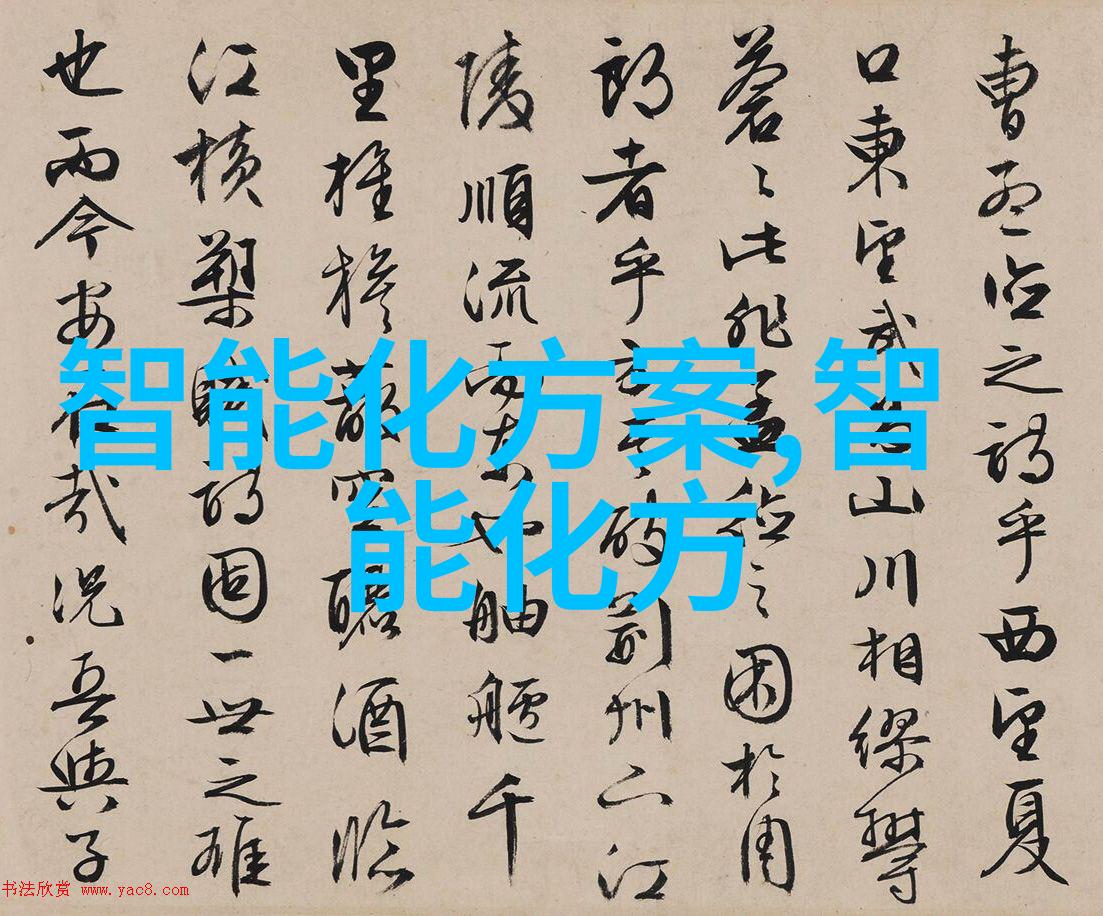 曹孟德之詩乎西望夏
口東望武昌山川相繆鬱
蒼〻此非孟德之困於周
郎者乎方其破荊州下江
陵順流而東也舳艫千
里旌旗蔽空釃酒臨
江橫槊賦詩固一世之雄
也而今安在哉況吾與子
智能化方案,智
能化方
书法欣赏 www.yac8.com